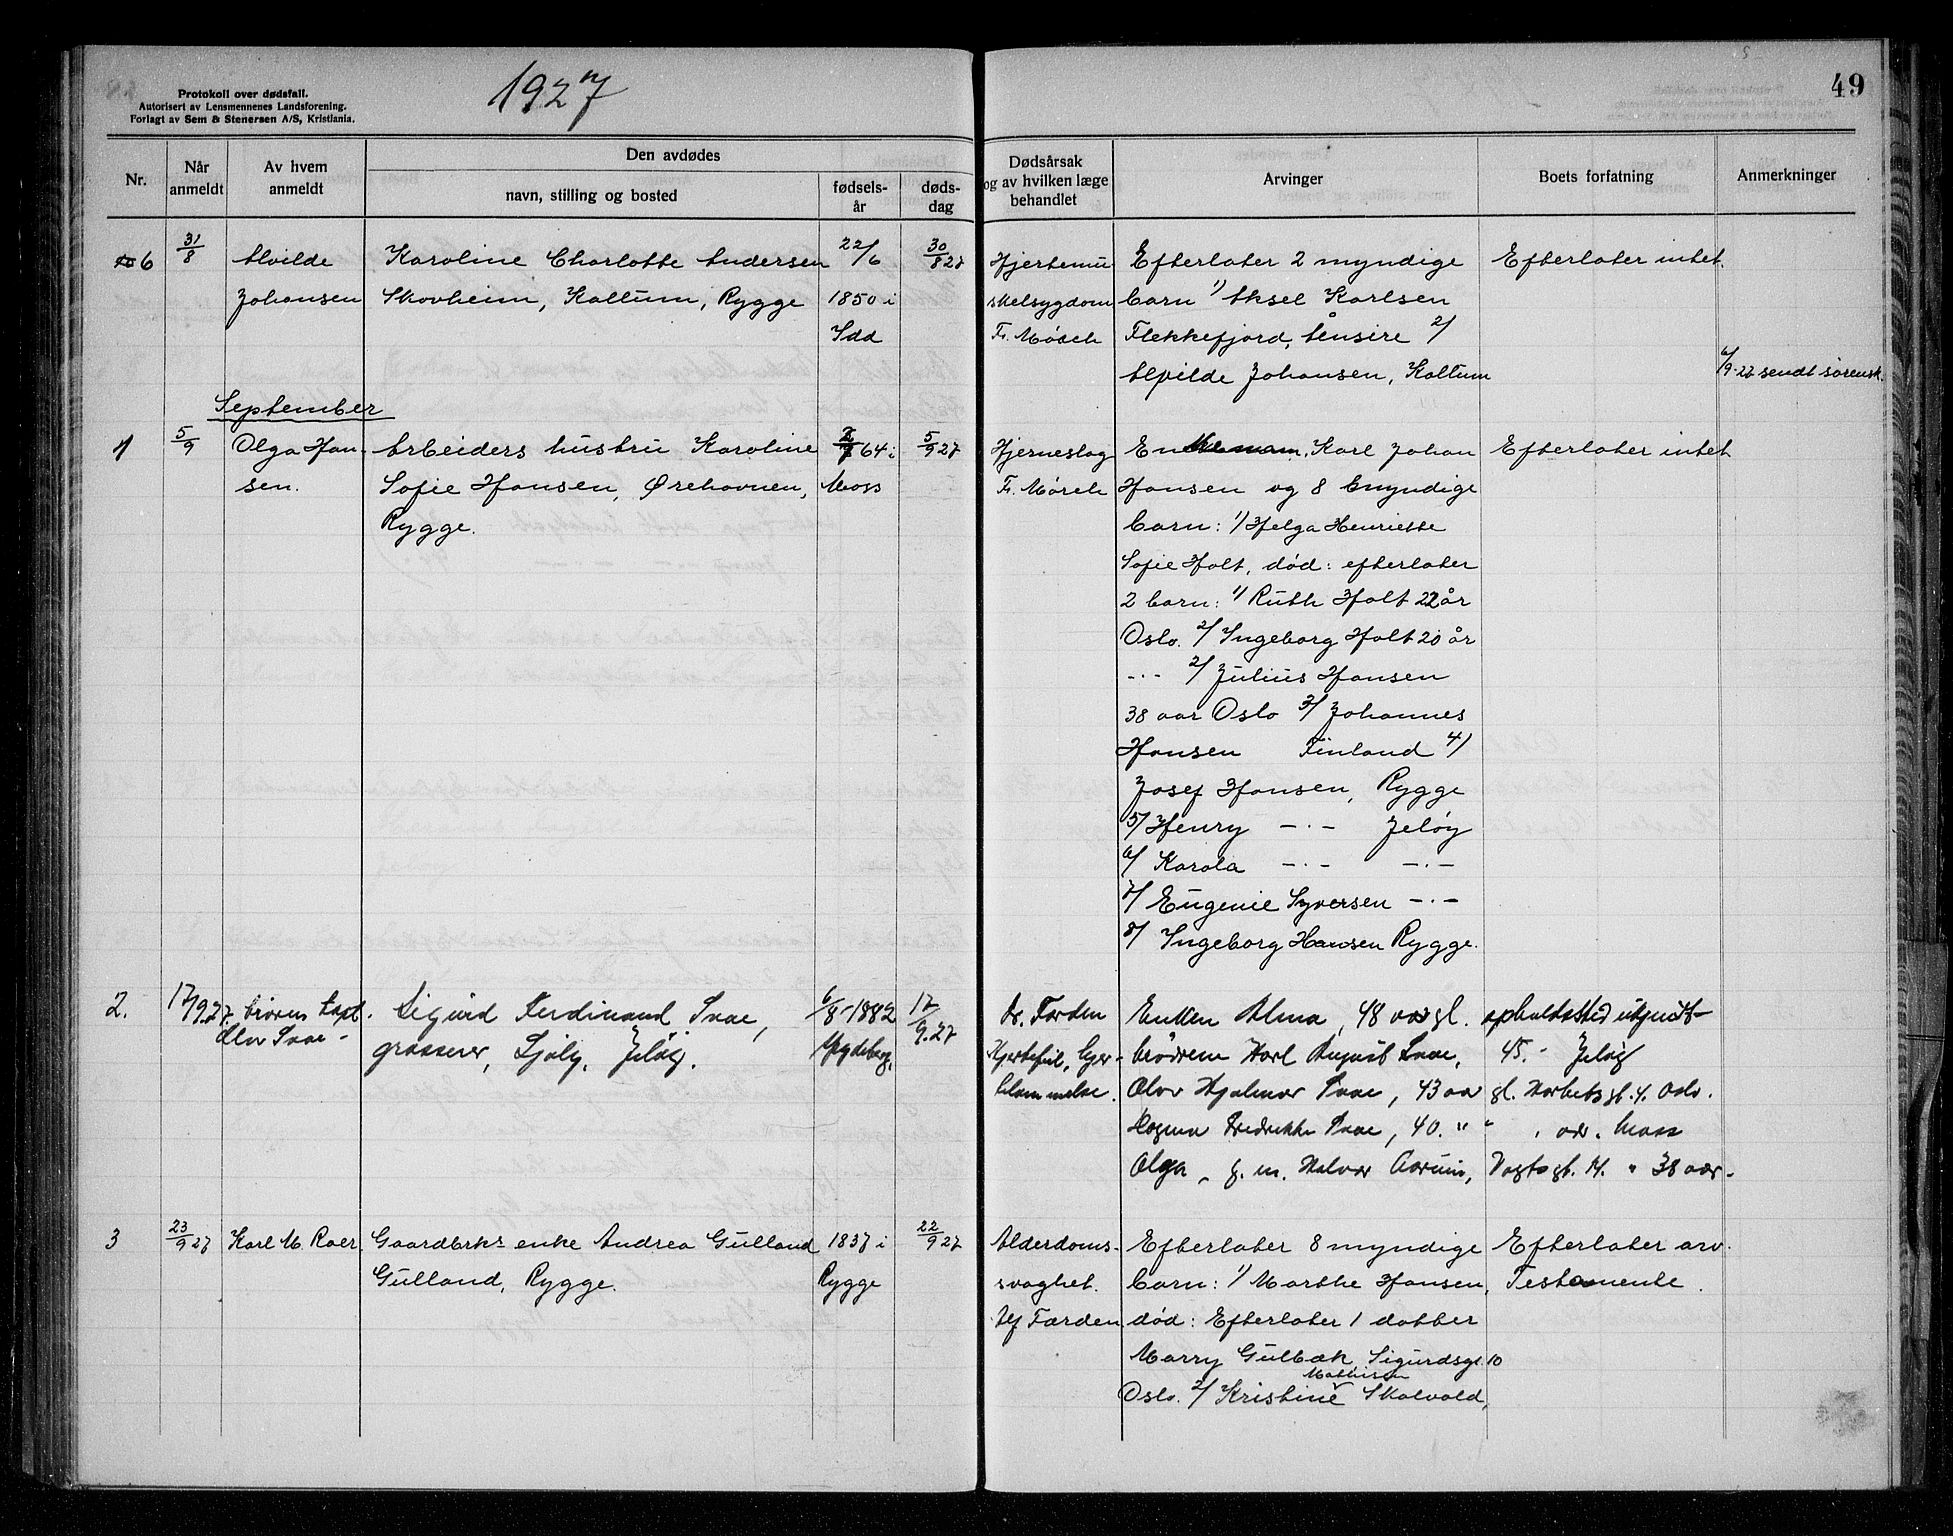 1927
49
Protokoll over dødsfall.
Autorisert av Lensmennenes Landsforening.
Forlagt av Sem & Stenersen A/S, Kristiania.
Nr.
Når anmeldt
Av hvem anmeldt
Den avdødes
navn, stilling og bosted
fødsels-år
døds-dag
Dødsårsak og av hvilken læge behandlet
Arvinger
Boets forfatning
Anmerkninger
6
31/8
Alvilde
Johansen
Karoline Charlotte Andersen
Skovheim, Kaltum, Rygge
22/6
1850 i
Idd
30/8 27
Hjertemu
skelsygdom
Fr. Mørch
Efterlater 2 myndige
barn 1/ Aksel Karlsen
Flekkefjord, Ånsire 2/
Alvilde Johansen, Kaltum
Efterlater intet.
6/9-27 sendt sorensk.
September
1
5/9
Olga Han-
sen.
Arbeiders hustru Karoline
Sofie Hansen, Ørehavnen,
Rygge.
64 i
Moss
5/9 27
Hjerneslag
Fr. Mørch
Enkemann, Karl Johan
Hansen og 8 myndige
barn: 1/ Helga Henriette
Sofie Holt, død: efterlater
2 barn: 1/ Ruth Holt 22 år
Oslo. 2/ Ingeborg Holt 20 år
-·- 2/ Julius Hansen
38 aar Oslo 3/ Johannes
Hansen Finland 4/
Josef Hansen, Rygge
5/ Henry -·- Jeløy
6/ Karola -·- -·-
7/ Eugenie Syversen -·-
8/ Ingeborg Hansen Rygge.
Efterlater intet
2.
17/9.27.
broren kapt.
Olav Svae -
Sigurd Ferdinand Svae,
grosserer, Sjøly, Jeløy.
6/8-1882
Spydeberg.
17/9.27
Dr. Færden
Hjertefeil,
Enken Alma, 48 aar gl. opholdssted ukjendt-
brødrene Karl August Svae, 45.- Jeløy
Olav Hjalmar Svae, 43 aar gl. Oslo.
Fredrikke Svae, 40. " " Moss
Olga, g. m. Halvor Aarum, Vogtsgt. 14. " 38 aar-
3
23/9 27
Karl M. Roer
Gaardbrks enke Andrea Gulland
Gulland, Rygge.
1837 i
Rygge
22/9 27
Alderdoms-
svaghet.
Færden
Efterlater 8 myndige
barn: 1/ Marthe Hansen,
død: Efterlater 1 datter
Marry Gulbæk, Sigurdsgt. 10
Mathisen
Oslo. 2/ Kristine Skalvold,
Efterlater arv.
Testamente.